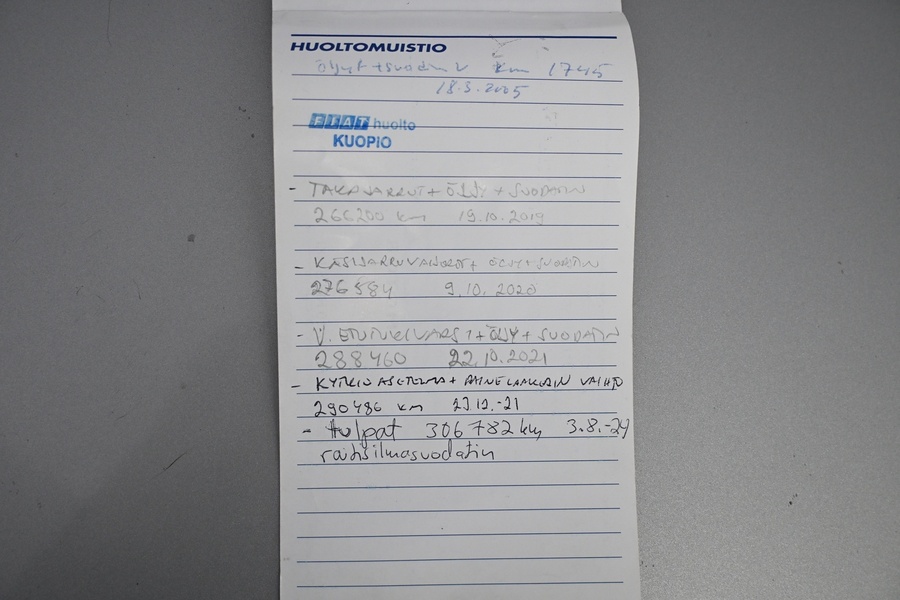 HUOLTOMUISTIO
öljyt + suodin V km 1745
18.3.2005
FIAT huolto
KUOPIO
- TAKAJARRUT + ÖLJY + SUODATIN
266200 km 19.10.2019
- KÄSIJARRUVAIJERIT + ÖLJY + SUODATIN
276584 9.10.2020
- V. ETUTUKIVARSI + ÖLJY + SUODATIN
288460 22.10.2021
- KYTKINASETELMA + PAINELAAKERIN VAIHTO
290486 km 23.12.-21
- tulpat 306782 km 3.8.-24
raitisilmasuodatin